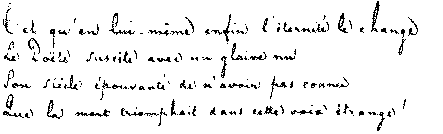 Tel qu'en lui-même enfin l'éternité le change
Le Poëte suscite avec un glaive nu
Son siècle épouvanté de n'avoir pas connu
Que la mort triomphait dans cette voix étrange!